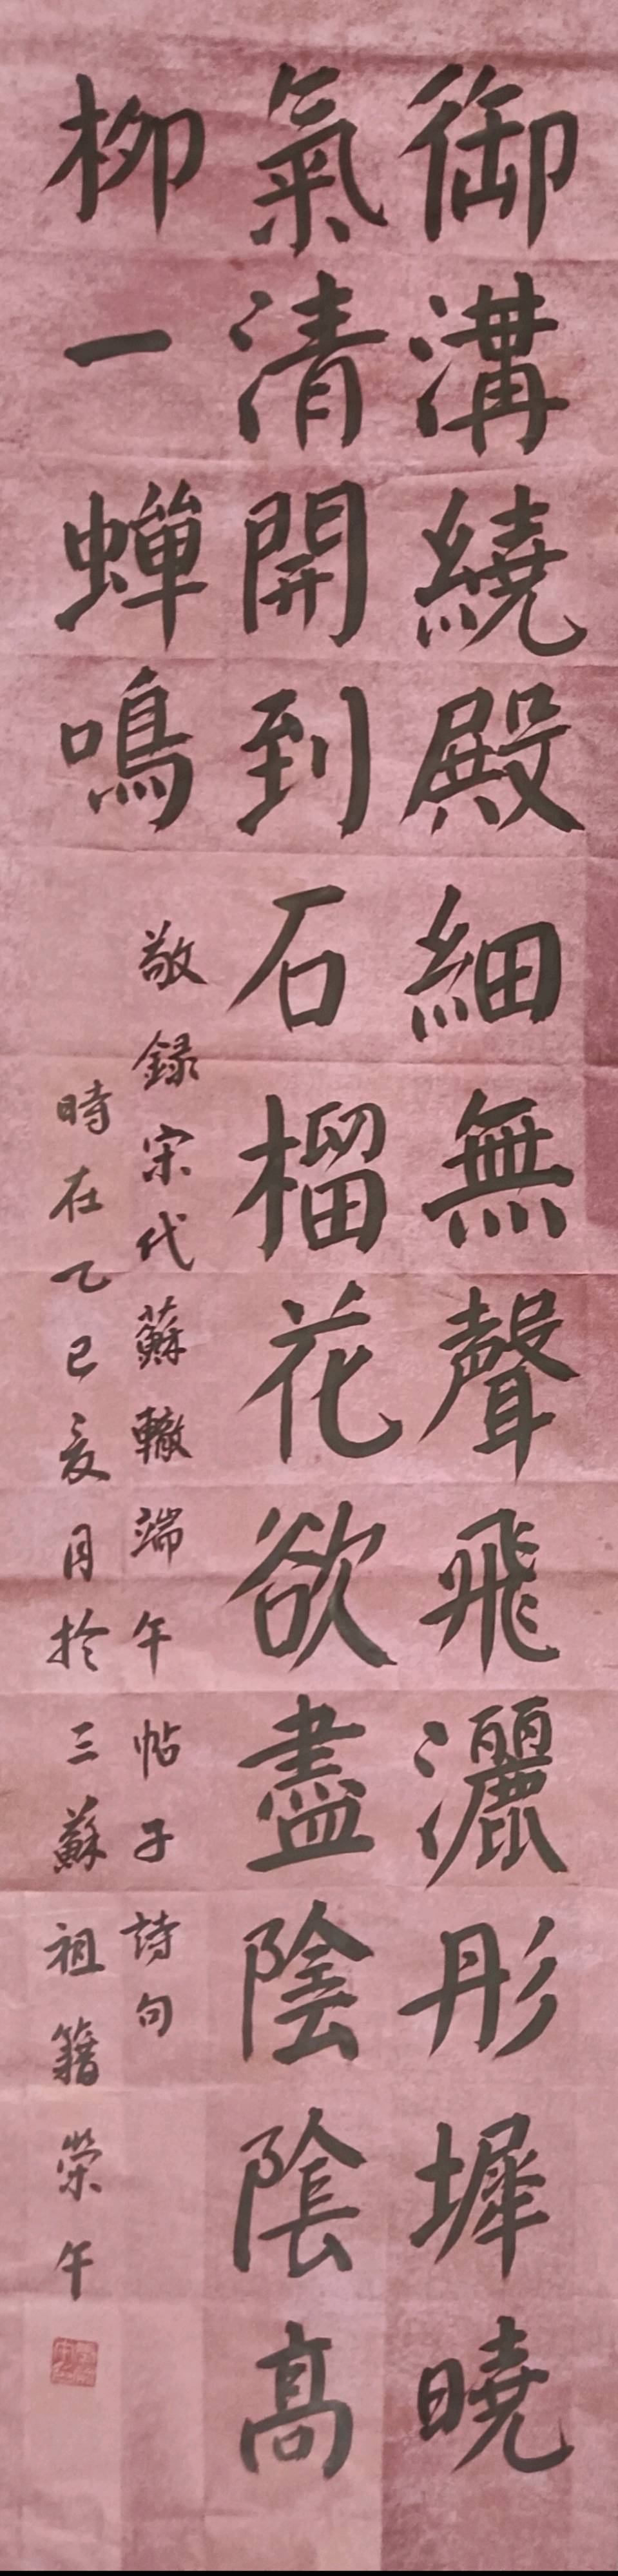 御溝繞殿細無聲飛灑彤墀曉
氣清開到石榴花欲盡陰陰高
柳一蟬鳴
敬録宋代蘇轍端午帖子詩句
時在乙巳夏月於三蘇祖籍榮午